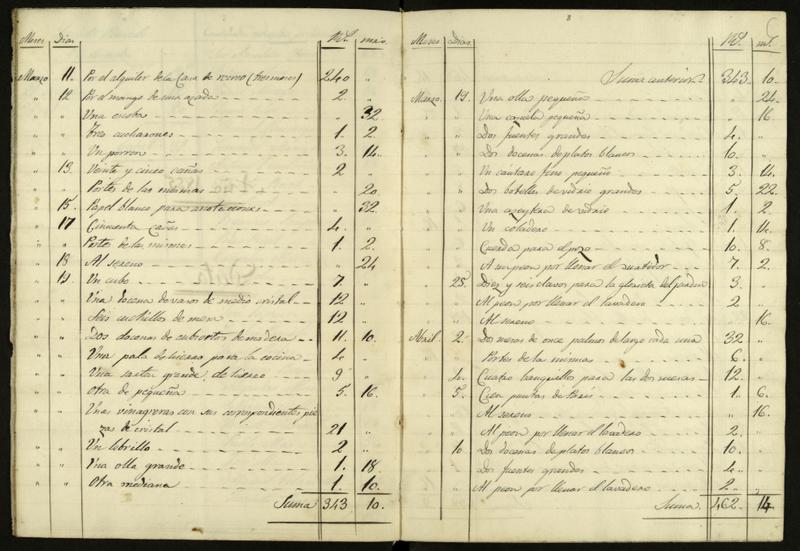 Meses Dias Rs. mrs.
Marzo 11. Por el alquiler de la Casa de recreo (tres meses) 240 "
" 12 Por el mango de una azada 2. "
" " Una escoba " 32.
" " Tres cucharones 1. 2.
" " Un porron 3. 14.
" 13. Veinte y cinco cañas 2 "
" " Portes de las mismas 20.
" 15. Papel blanco para anotaciones " 32
" 17 Cincuenta cañas 4. "
" " Portes de las mismas 1. 2.
" 18 Al sereno " 24
" 19. Un cubo 7. "
" " Una docena de vasos de medio cristal 12 "
" " Seis cuchillos de mesa 12 "
" " Dos docenas de cubiertos de madera 11. 10.
" " Una pala de hierro para la cocina 4. "
" " Una sarten grande de hierro 9 "
" " Otra de pequeña 5. 16.
" " Unas vinagreras con sus correspondientes pie
zas de cristal 21 "
" " Un lebrillo 2 "
" " Una olla grande 1. 18.
" " Otra mediana 1. 10.
Suma 343 10.
8
Meses Dias. Rs. ms.
Suma anterior 343. 10.
Marzo. 19. Una olla pequeña 24.
" " Una cazuela pequeña " 16.
" " Dos fuentes grandes 4. "
" " Dos docenas de platos blancos 10. "
" " Un cantaro fino pequeño 3. 14.
" " Dos botellas de vidrio grandes 5. 22
" " Una azeytera de vidrio 1. 2
" " Un coladero 1. 14.
" " Cuerda para el pozo 10. 8.
" " A un peon por llenar el 7. 2.
" 25. Diez y seis clavos para la glorieta del jardin 3. "
" " Al peon por llenar el lavadero 2 "
" " Al sereno " 16.
Abril. 2. Dos mesas de once palmos de largo cada una 32 "
" " Portes de las mismas 6. "
" 4. Cuatro banquillos para las dos mesas 12. "
" 5. Cien puntas de 1. 6.
" " Al sereno " 16.
" " Al peon por llenar el lavadero 2. "
" 10 Dos docenas de platos blancos 10. "
" " Dos fuentes grandes 4. "
" " Al peon por llenar el lavadero 2. "
Suma. 462. 14